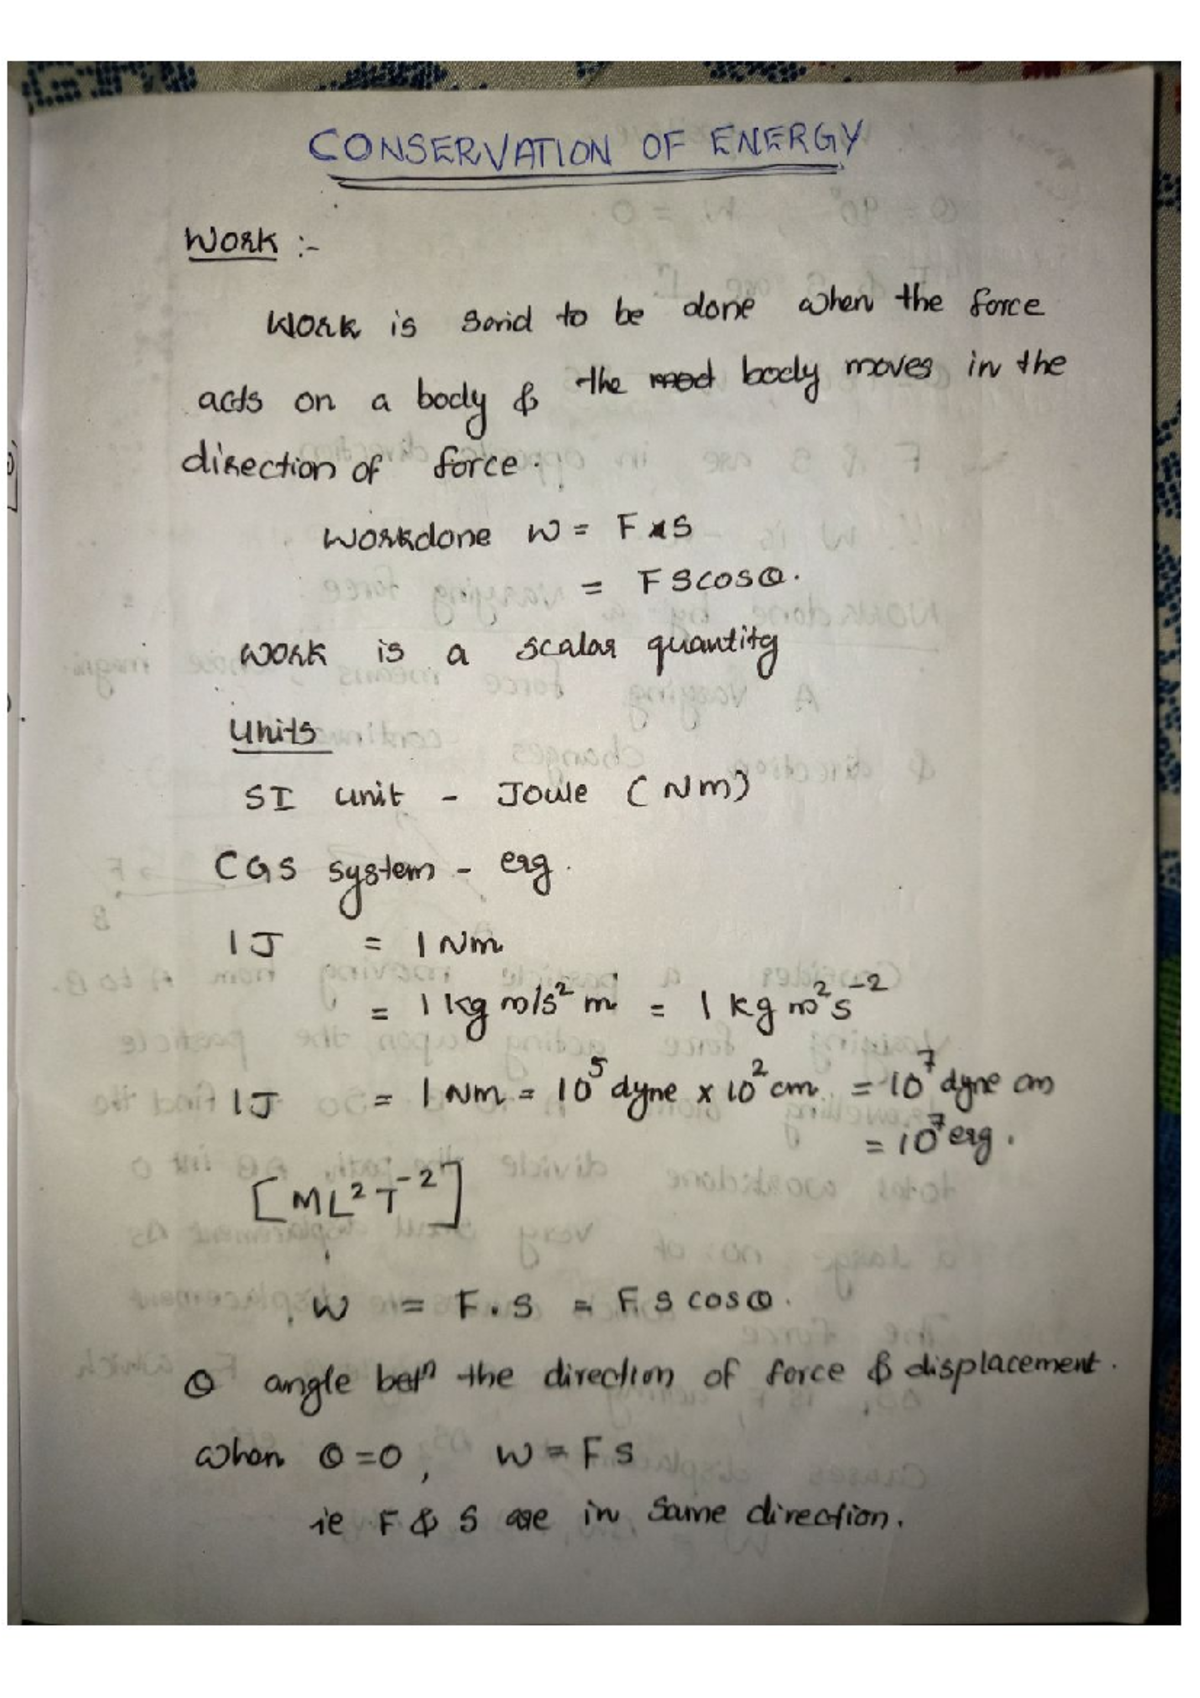 CONSERVATION OF ENERGY
Work :-
Work is said to be done when the force
acts on a body & the body moves in the
direction of force.
Workdone W = F x S
= F S cos θ.
Work is a scalar quantity
Units
SI unit - Joule (Nm)
CGS system - erg.
1 J = 1 Nm
= 1 kg m/s² m = 1 kg m² s⁻²
1 J = 1 Nm = 10⁵ dyne x 10² cm = 10⁷ dyne cm
= 10⁷ erg.
[ML² T⁻²]
W = F . S = F S cos θ.
θ angle betⁿ the direction of force & displacement.
When θ = 0, W = F S
ie F & S are in same direction.